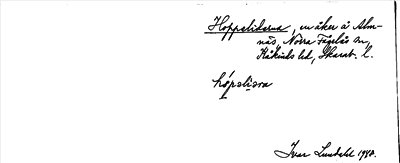 Hoppeliderna, en åker å Alm-
näs, Norra Fågelås sn,
Kåkinds hd, Skarab. l.
hópəliəra
Ivar Lundahl 1980.